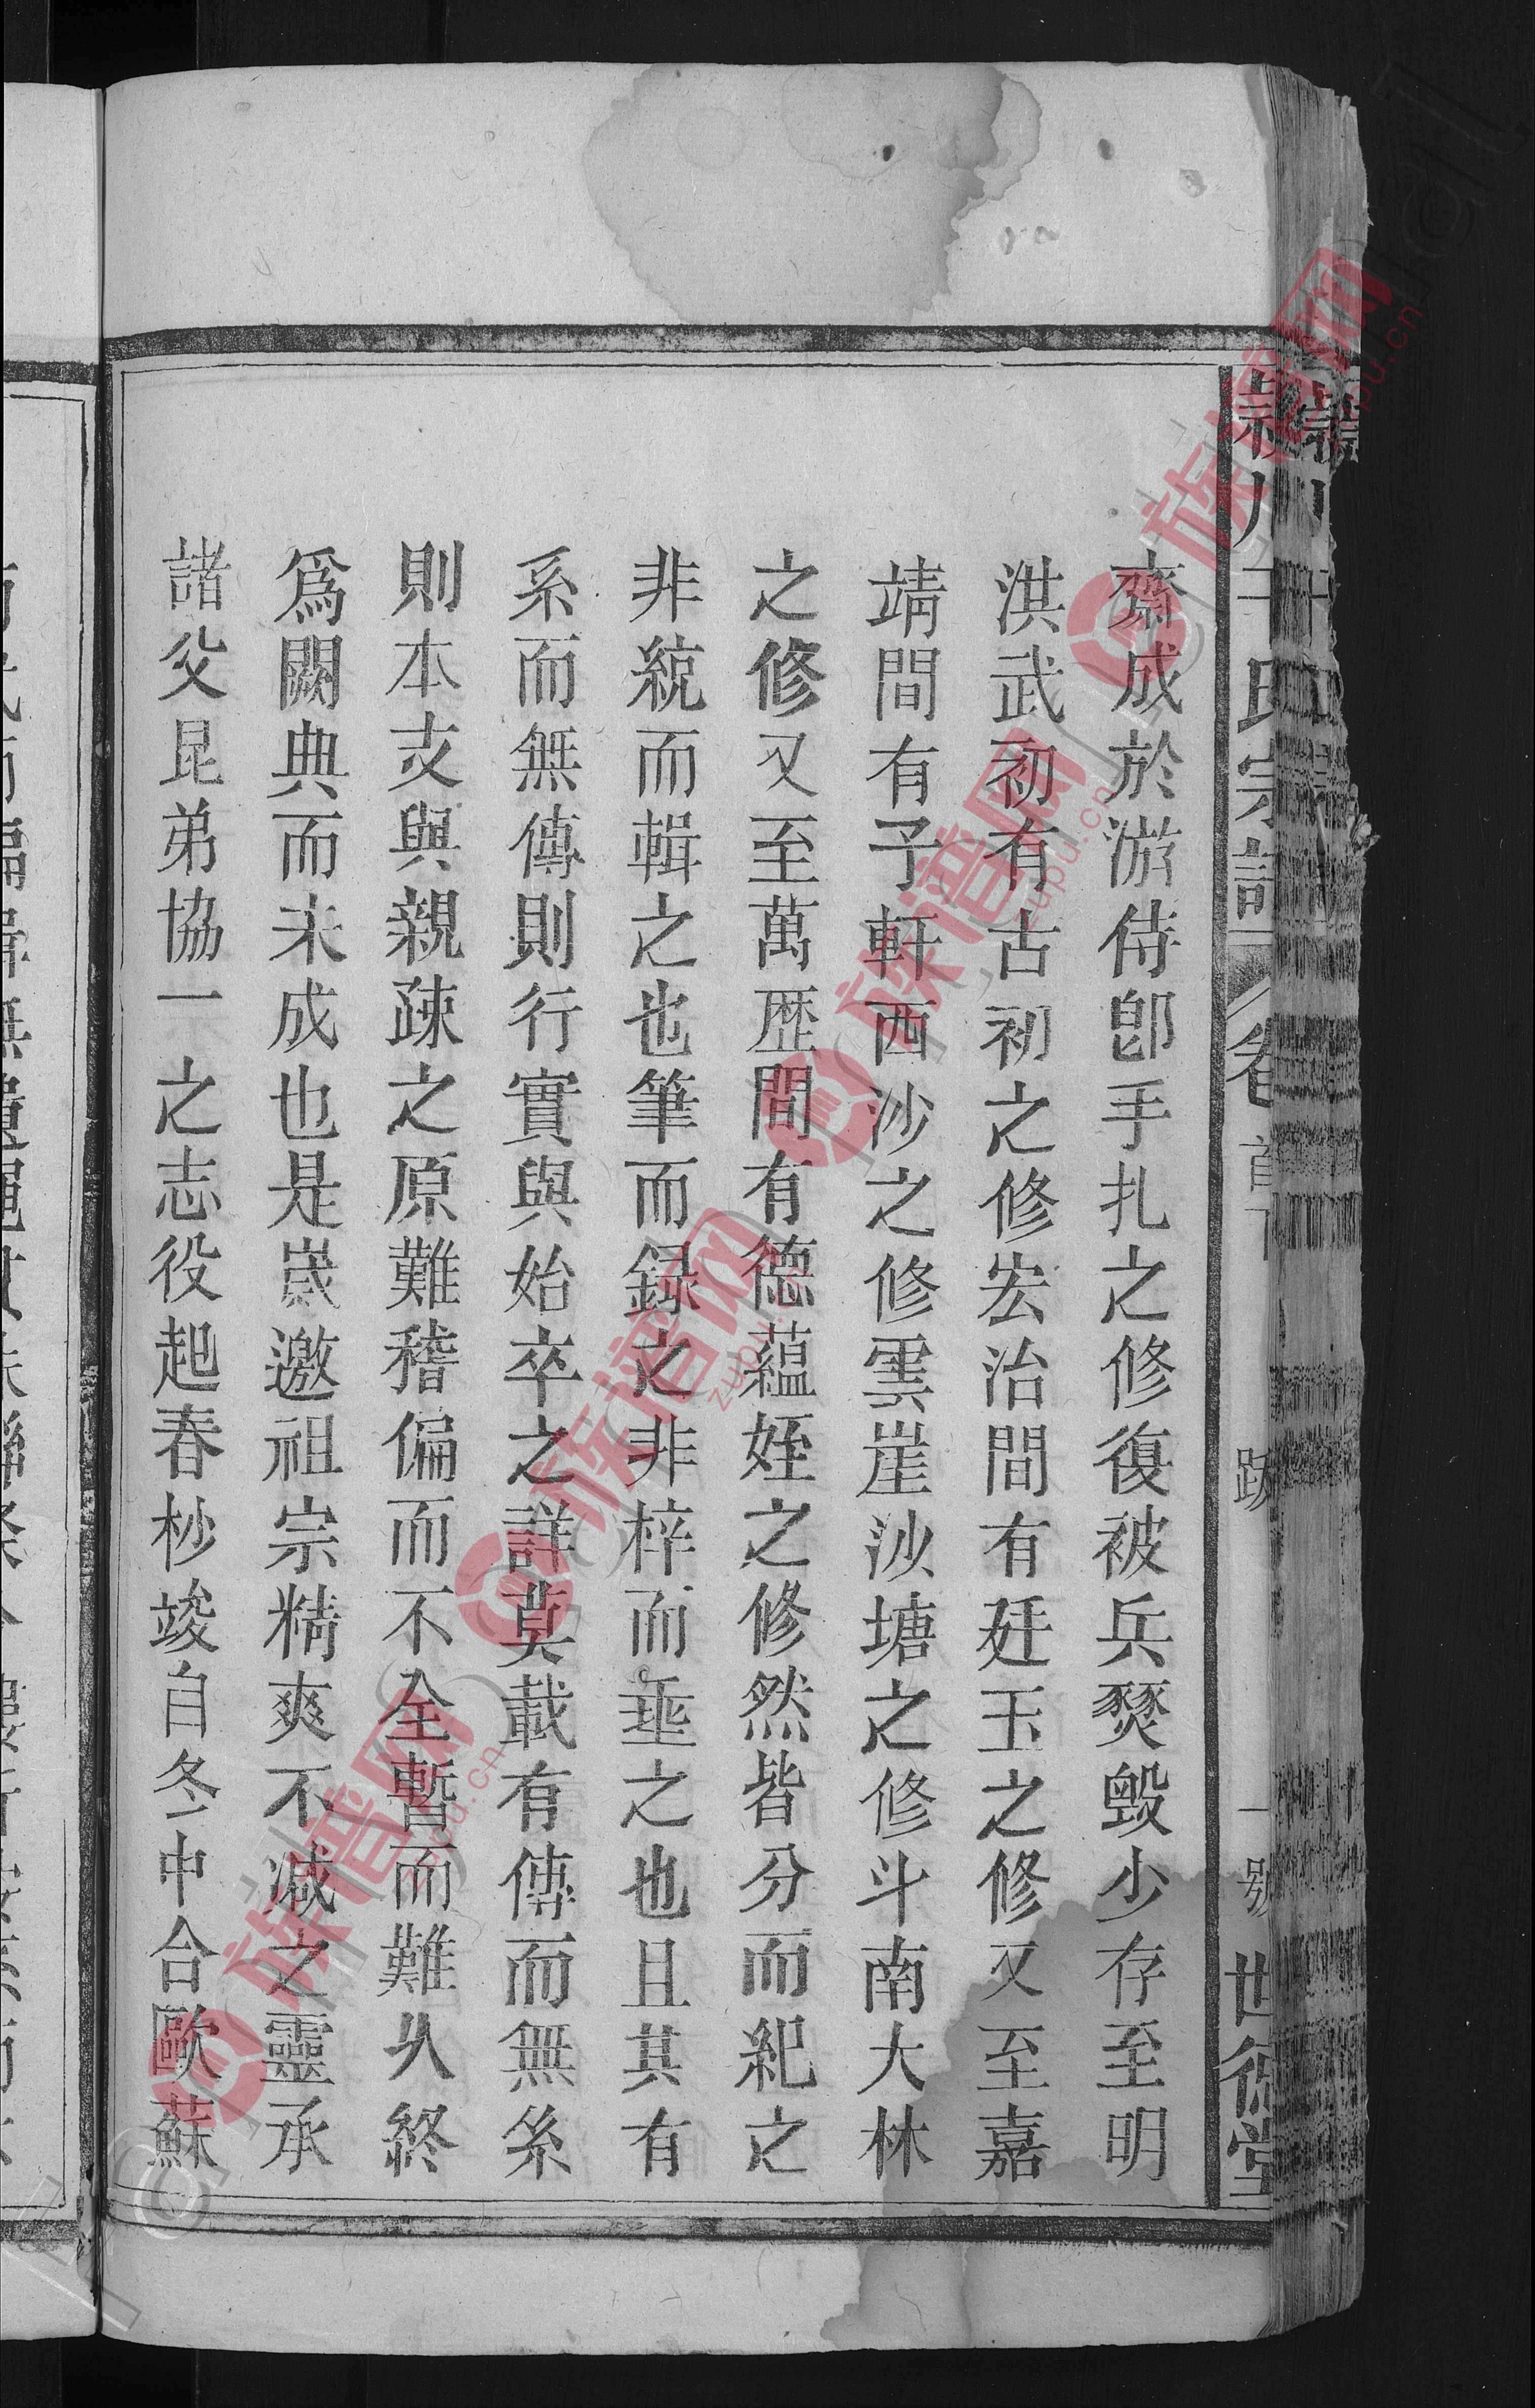 齋成於游侍卽手扎之修復被兵燹毀少存至明
洪武初有古初之修宏治間有廷玉之修又至嘉
靖間有予軒西沙之修雲崖沙塘之修斗南大林
之修又至萬歷間有德蘊姪之修然皆分而紀之
非統而輯之也筆而録之非梓而垂之也且其有
系而無傳則行實與始卒之詳莫載有傳而無系
則本支與親疎之原難稽偏而不全暫而難久終
爲闕典而未成也是崴邀祖宗精爽不減之靈承
諸父昆弟協一之志役起春杪竣自冬中合歐蘇
氏宗譜
卷首
跋
一
號
世德堂
族谱网
zupu.cn